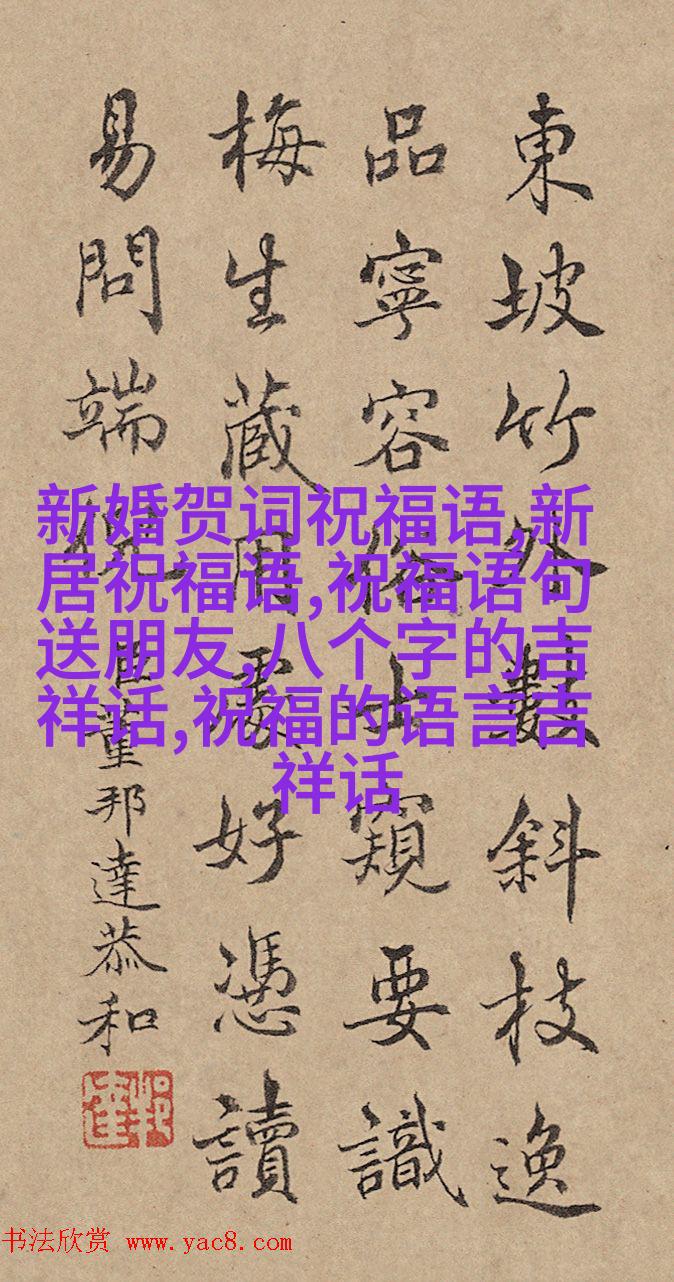 東坡竹外數斜枝逸
品寧容俗士窺要識
梅生藏用處好憑讀
易問端倪 臣董邦達恭和
新婚贺词祝福语,新
居祝福语,祝福语句
送朋友,八个字的吉
祥话,祝福的语言吉
祥话
书法欣赏 www.yac8.com